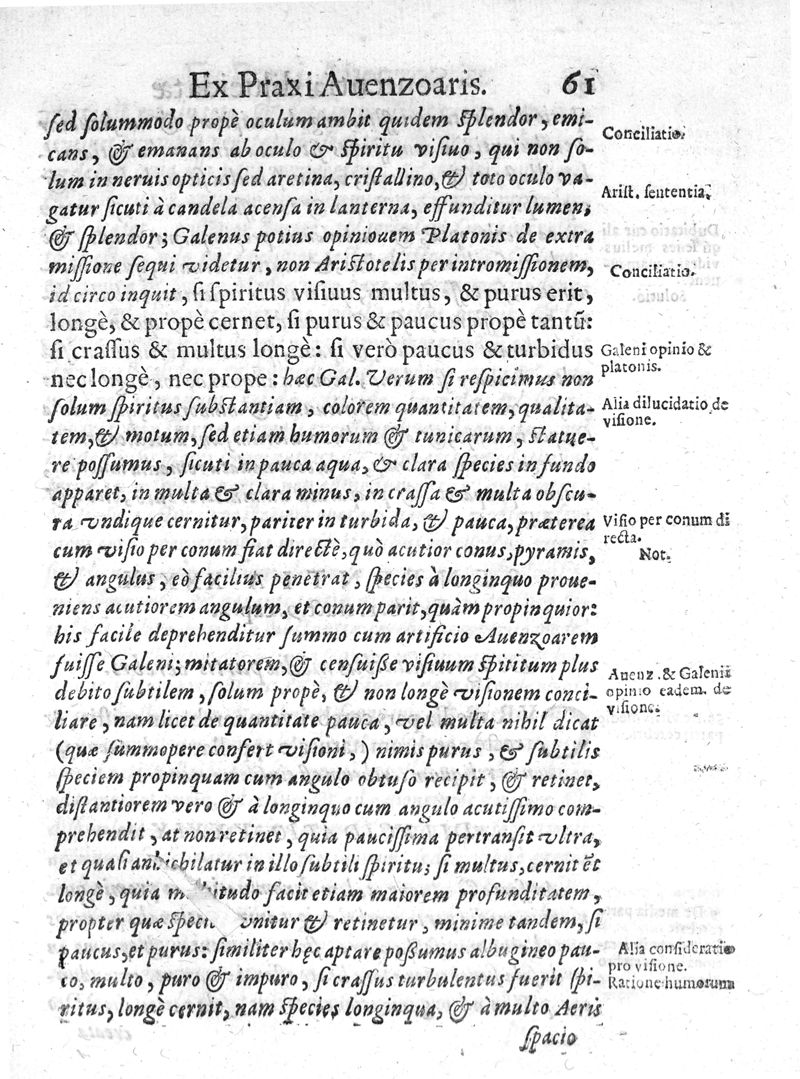 Ex Praxi Auenzoaris. 61
sed solummodo propè oculum ambit quidem splendor, emi-
cans, & emanans ab oculo & spiritu visiuo, qui non so-
lum in neruis opticis sed aretina, cristallino, & toto oculo va-
gatur sicuti à candela acensa in lanterna, effunditur lumen,
& splendor; Galenus potius opinionem Platonis de extra
missione sequi videtur, non Aristotelis per intromissionem,
id circo inquit, si spiritus visiuus multus, & purus erit,
longè, & propè cernet, si purus & paucus propè tantū:
si crassus & multus longè: si verò paucus & turbidus
nec longè, nec prope: hæc Gal. Verum si respicimus non
solum spiritus substantiam, colorem quantitatem, qualita-
tem, & motum, sed etiam humorum & tunicarum, statue-
re possumus, sicuti in pauca aqua, & clara species in fundo
apparet, in multa & clara minus, in crassa & multa obscu-
ra vndique cernitur, pariter in turbida, & pauca, præterea
cum visio per conum fiat directè, quò acutior conus, pyramis,
& angulus, eò facilius penetrat, species à longinquo proue-
niens acutiorem angulum, et conum parit, quàm propinquior:
his facile deprehenditur summo cum artificio Auenzoarem
fuisse Galeni; mitatorem, & censuisse visiuum spititum plus
debito subtilem, solum propè, & non longè visionem conci-
liare, nam licet de quantitate pauca, vel multa nihil dicat
(quæ summopere confert visioni,) nimis purus, & subtilis
speciem propinquam cum angulo obtuso recipit, & retinet,
distantiorem vero & à longinquo cum angulo acutissimo com-
prehendit, at non retinet, quia paucissima pertransit vltra,
et quasi annichilatur in illo subtili spiritu; si multus, cernit ēt
longè, quia multitudo facit etiam maiorem profunditatem,
propter quæ species vnitur & retinetur, minime tandem, si
paucus, et purus: similiter hęc aptare possumus albugineo pau-
co, multo, puro & impuro, si crassus turbulentus fuerit spi-
ritus, longè cernit, nam species longinqua, & à multo Aeris
spacio
Conciliatio.
Arist. sententia.
Conciliatio.
Galeni opinio &
platonis.
Alia dilucidatio de
visione.
Visio per conum di
recta.
Not.
Auenz. & Galeni
opinio eadem de
visione.
Alia consideratio
pro visione.
Ratione humorum